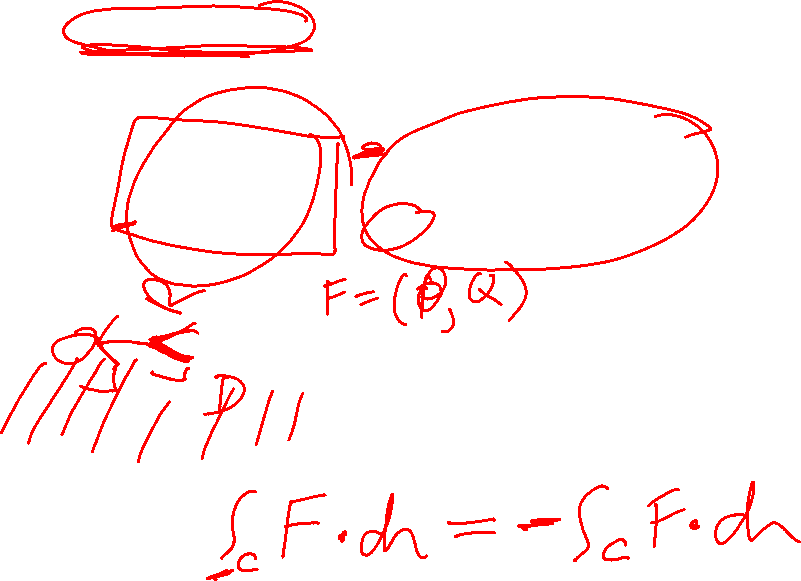 R
F = (P, Q)
D
∫_{-C} F · dr = - ∫_C F · dr